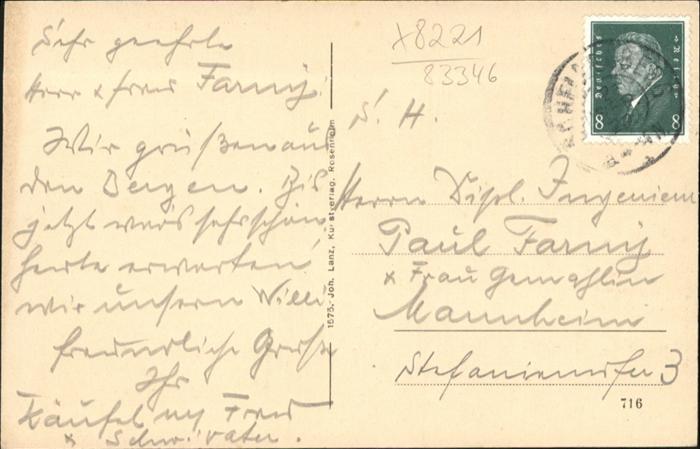 Sehr geehrte
Herr & Frau Farny.
Wir grüßen aus
den Bergen. Bis
jetzt wars sehr schön
heute erwarten
wir unsern Willi
freundliche Grüße
Ihr
Käufel u Frau
x Schw. vater.
x8221
83346
S. H.
Herrn Dipl. Ingenieur
Paul Farny
x Frau Gemahlin
Mannheim
Stefanienufer 3
716
1575. Joh. Lanz, Kunstverlag, Rosenheim
Deutsches Reich
8 8